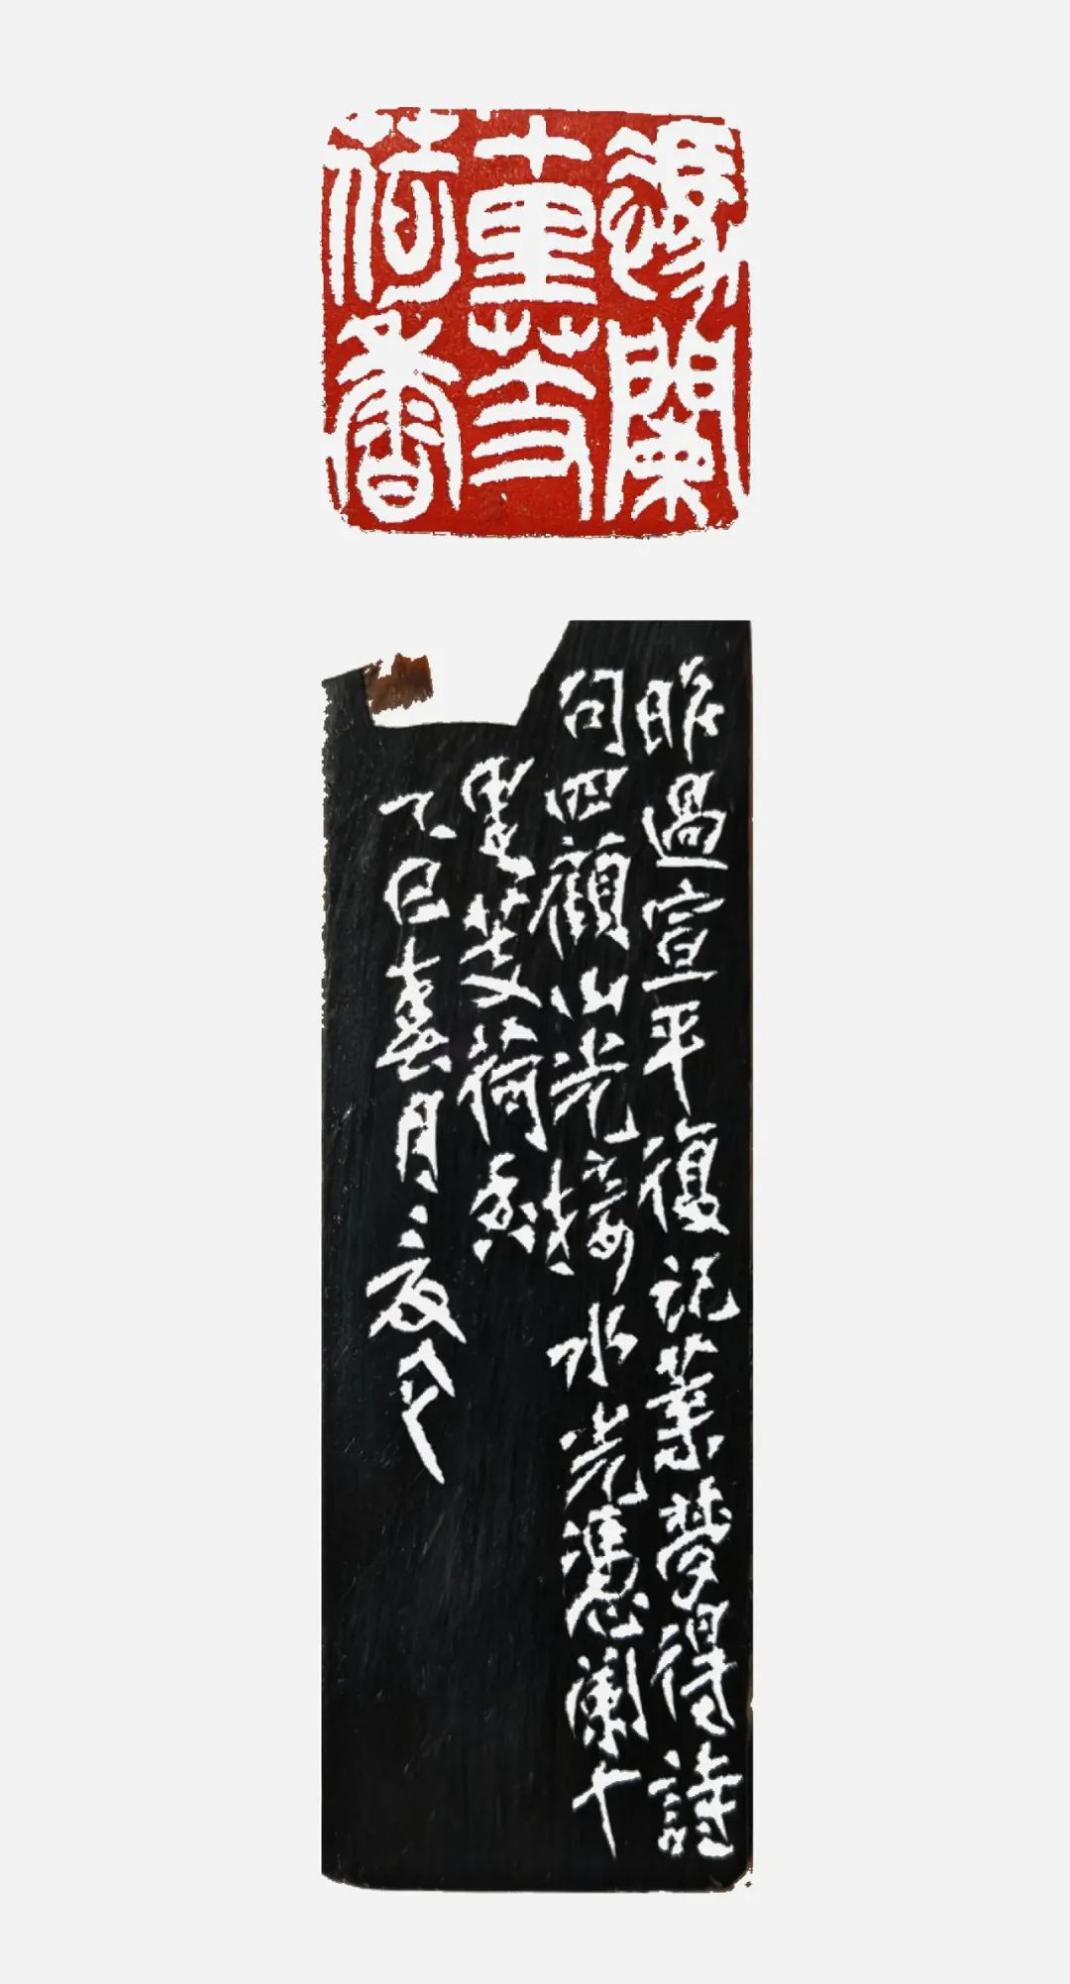 憑闌
十里芰
荷香
昨過宣平復記葉夢得詩
句四顧山光接水光憑闌十
里芰荷香
乙巳春月